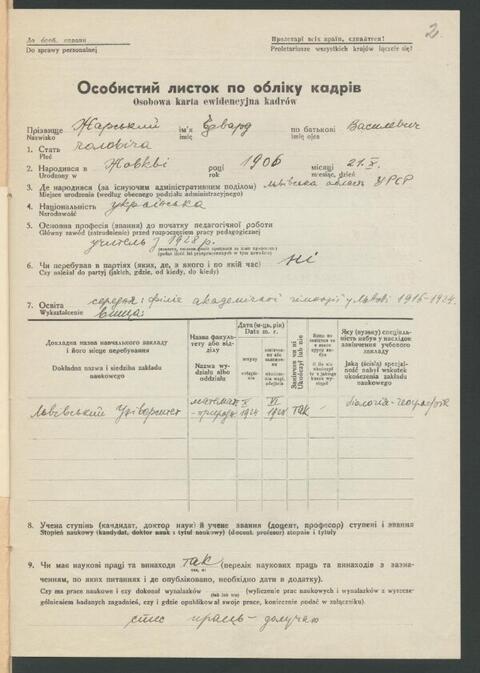 2.
До особ. справи
Do sprawy personalnej
Пролетарі всіх країн, єднайтеся!
Proletariusze wszystkich krajów łączcie się!
Особистий листок по обліку кадрів
Osobowa karta ewidencyjna kadrów
Прізвище Жарський ім'я Едвард по батькові Васильевич
Nazwisko imię imię ojca
1. Стать чоловіча
Płeć
2. Народився в Жовкві році 1906 місяці 21.X.
Urodzony w rok miesiąc, dzień
3. Де народився (за існуючим адміністративним поділом) Львівська область УРСР
Miejsce urodzenia (według obecnego podziału administracyjnego)
4. Національність українська
Narodowość
5. Основна професія (звання) до початку педагогічної роботи
Główny zawód (zatrudnienie) przed rozpoczęciem pracy pedagogicznej
учитель з 1928 р.
6. Чи перебував в партіях (яких, де, з якого і по якій час) ні
Czy należał do partyj (jakich, gdzie, od kiedy, do kiedy)
7. Освіта середня: філія академічної гімназії у Львові 1916-1924.
Wykształcenie вища:
Докладна назва навчального закладу і його місце перебування
Dokładna nazwa i siedziba zakładu naukowego
Назва факультету або відділу
Nazwa wydziału albo oddziału
Дата (м-ць, рік)
Data m. r.
вступу
Закінчив чи ні
Ukończył lub nie
Яку (вузьку) спеціальність набув у наслідок закінчення учбового закладу
Jaką (ścisłą) specjalność nabył wskutek ukończenia zakładu naukowego
Львівський Університет
математ.-природн. X 1924 VI 1928 так - біологія-географія
8. Учена ступінь (кандидат, доктор наук) й учене звання (доцент, професор) ступені і звання
Stopień naukowy (kandydat, doktor nauk i tytuł naukowy) (docent, profesor) stopnie i tytuły
9. Чи має наукові праці та винаходи так (перелік наукових праць та винаходів з зазначенням, по яких питаннях і де опубліковано, необхідно дати в додатку).
Czy ma prace naukowe i czy dokonał wynalazków (wyliczenie prac naukowych i wynalazków z wyszczególnieniem badanych zagadnień, czy i gdzie opublikował swoje prace, koniecznie podać w załączniku).
спис праць - долучаю